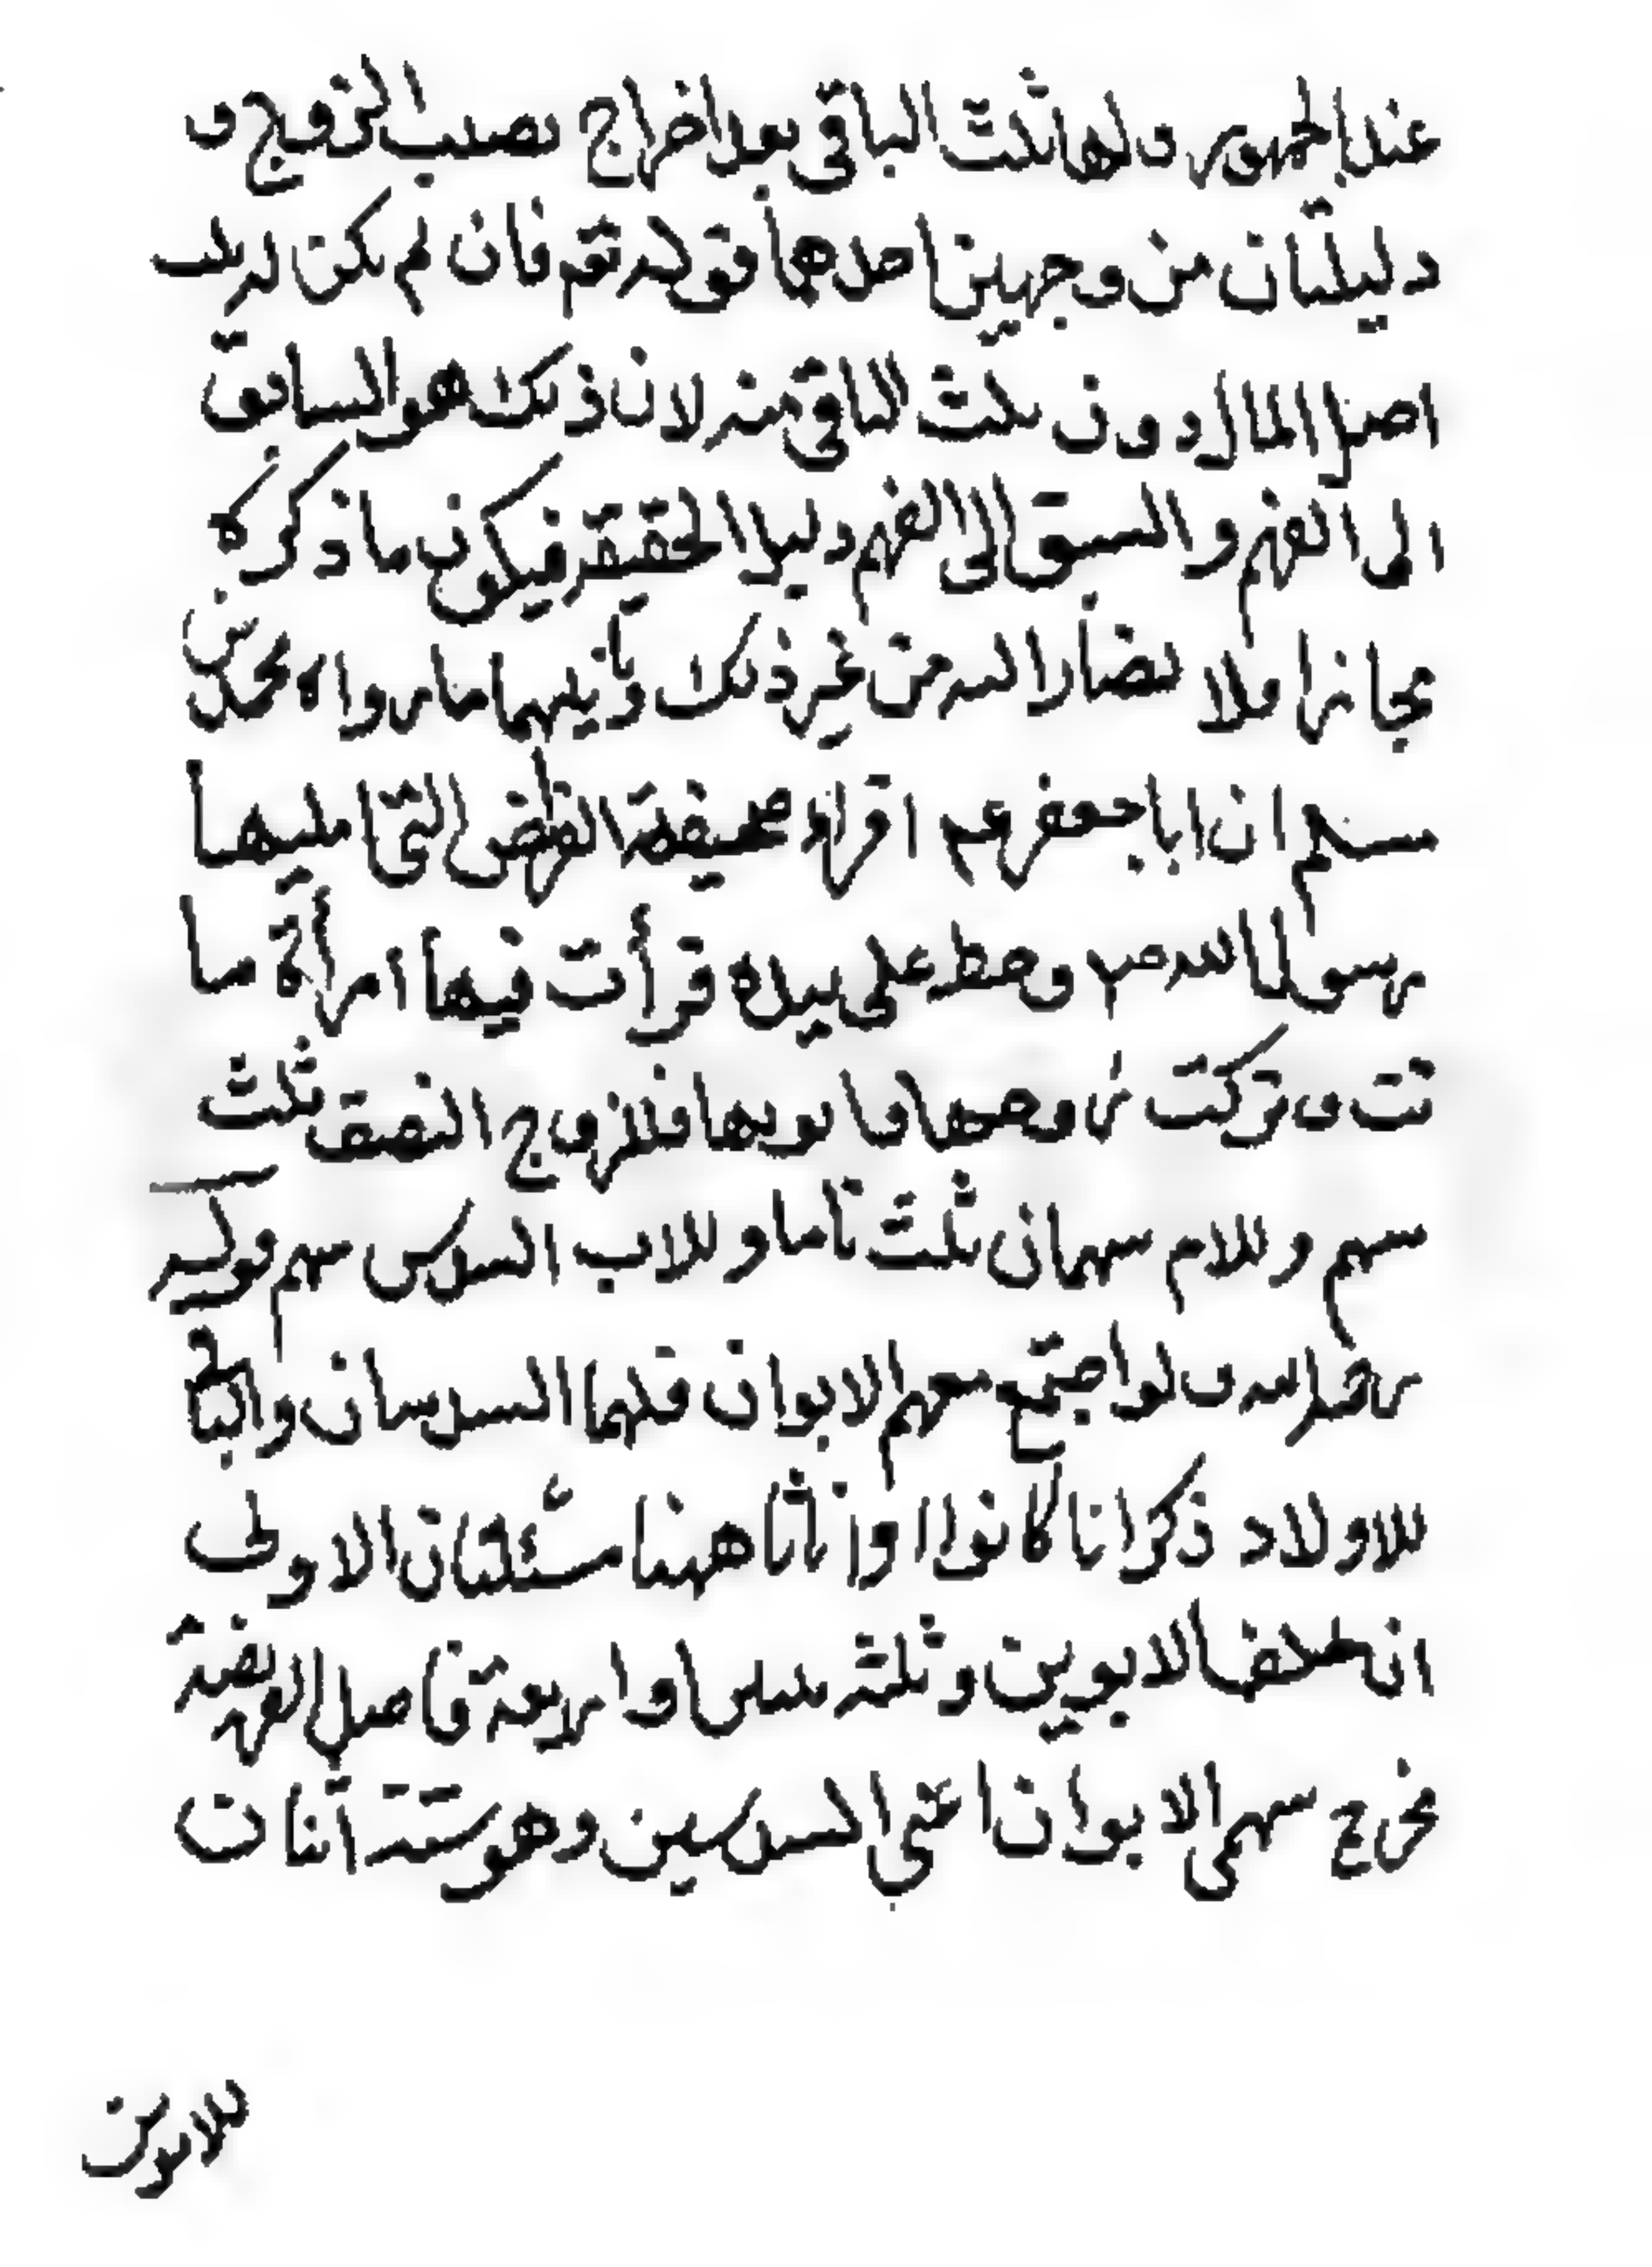 عند الجمهور ولها ثلث الباقي بعد اخراج نصيب الزوج و
دليلنان من وجهين احدهما قوله تعم فان لم يكن له
اصل المال دون ثلث الباقي منه لان ذلك هو السابق
الى الفهم والسبق الى الفهم دليل الحقيقة فيكون ما ذكره
مجازا فلا يضار اليه من غير ذلك وثانيهما ما رواه محمد بن
مسلم ان ابا جعفر عم اقراه صحيفة الفرايض التي امليها
رسول الله ص وخط على بيده قرأت فيها امرأة ما
تت وتركت زوجها وابويها فللزوج النصف ثلث
سهم وللام سهمان ثلث تاما وللاب السدس سهم قوله
ره الله ولو اجتمع معهم الابوان فلهما السدسان والباقي
للاولاد ذكرانا كانوا او اناثا هيهنا مسئلتان الاولى
انه خلف الابوين وثلثة بنين او اربعة فاصل الفريضة
مخرج سهمى الابوان اعنى السدسين وهو ستة آثنان
للابوين